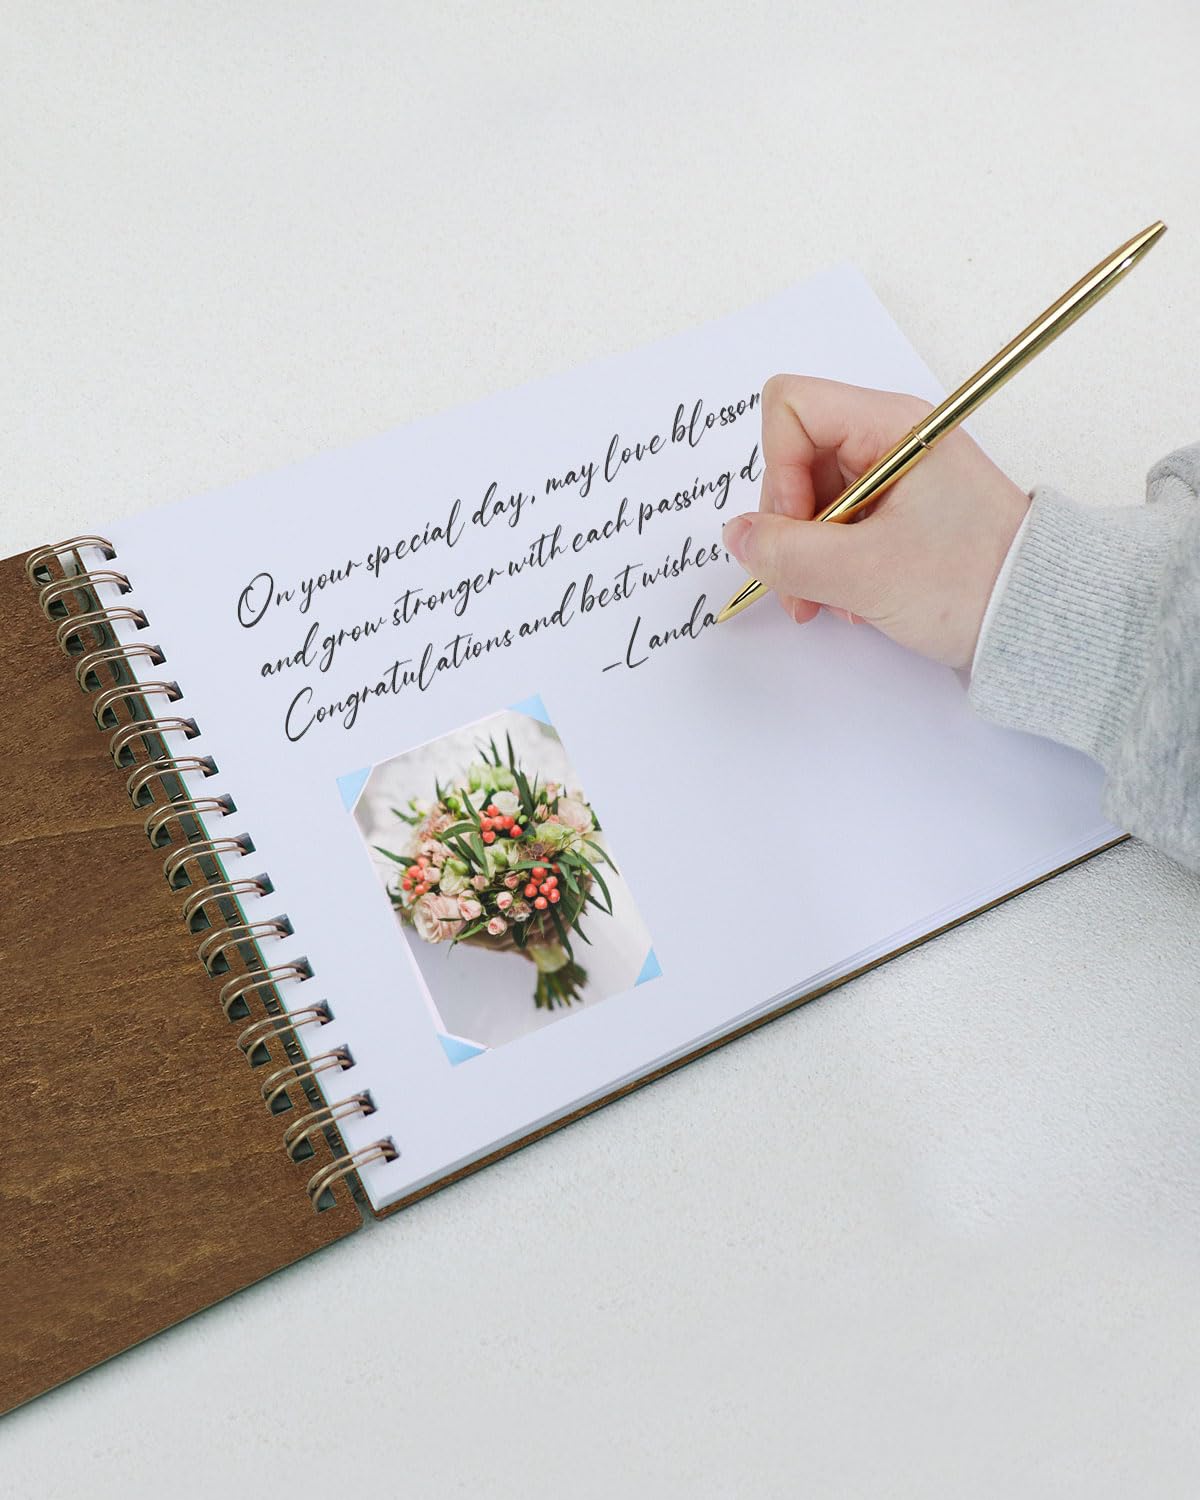 On your special day, may love blossom
and grow stronger with each passing d
Congratulations and best wishes,
_Landa